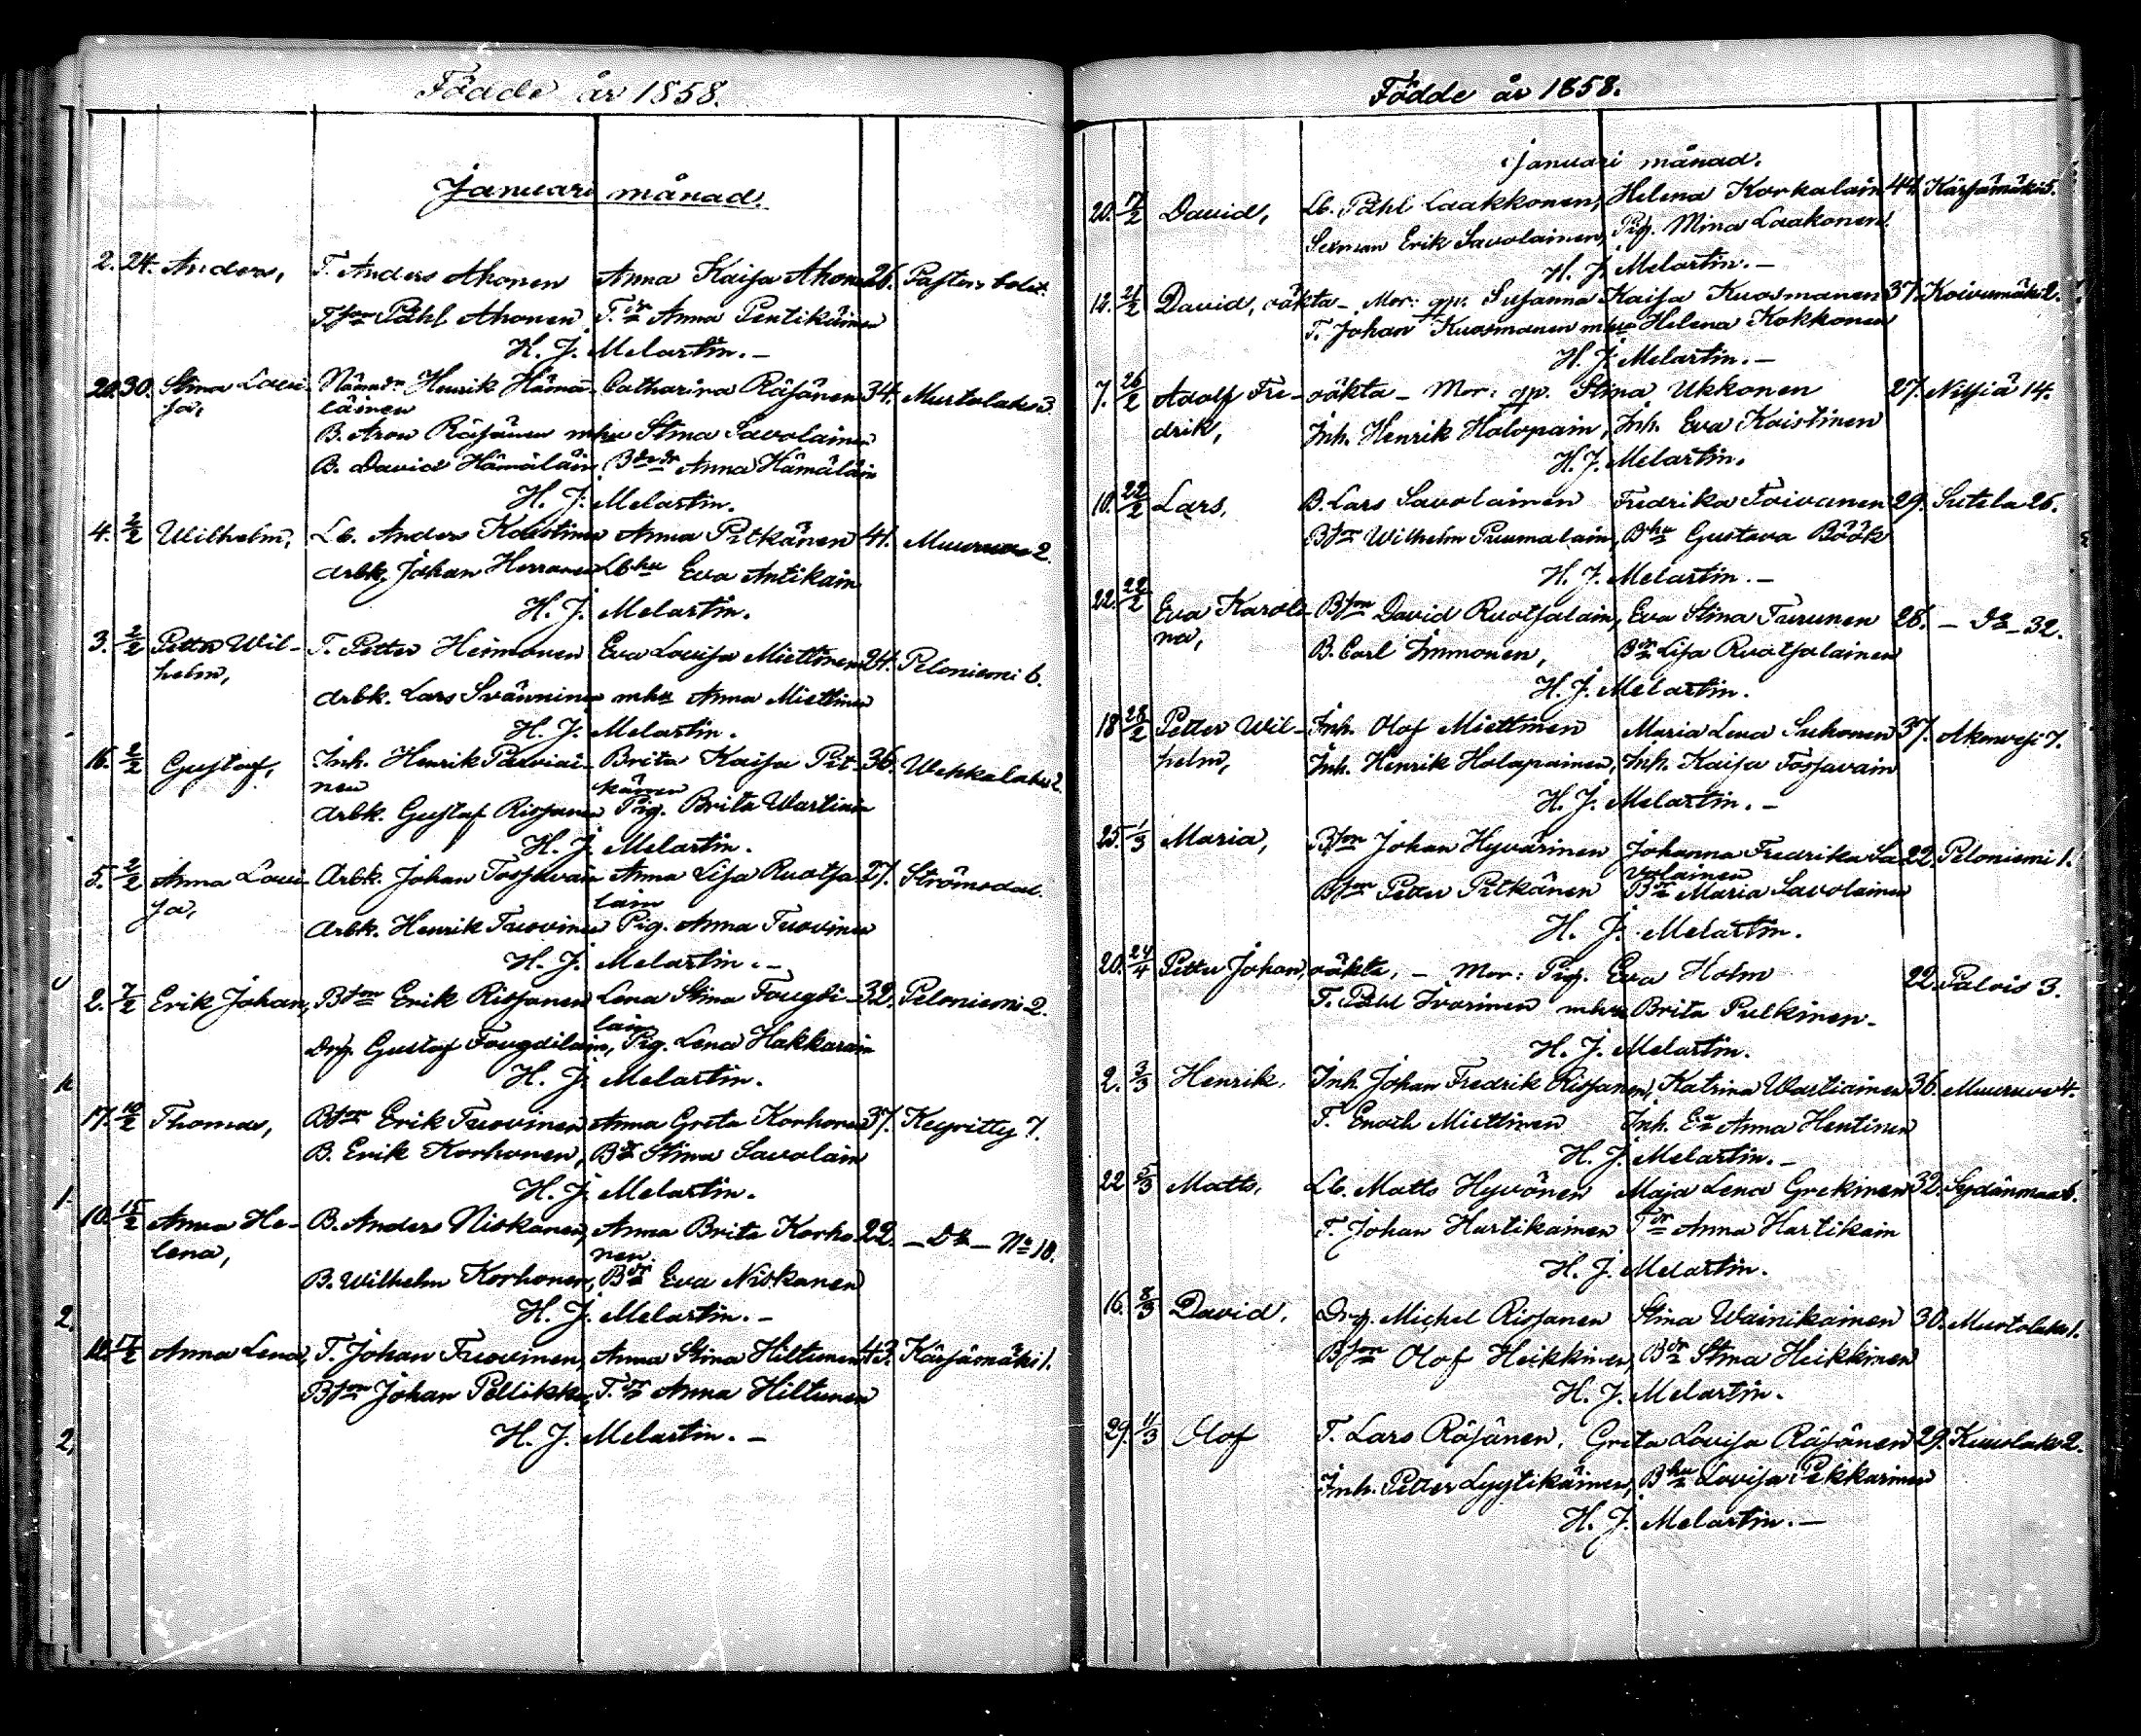 Födde år 1858.
Januari månad.
2. 24. Anders, T. Anders Ahonen Anna Kaisa Ahonen 26. Pastors bolet.
Tson Påhl Ahonen T.dr Anna Pentikäinen
H. J. Melartin. —
20. 30. Stina Lovi- Nämndn Henrik Hämä- Catharina Räisänen 34. Murtolaks 3.
sa, läinen
B. Aron Räisänen mhu Stina Savolainen
B. David Hämäläin Bdedr Anna Hämäläin
H. J. Melartin.
4. 2/2 Wilhelm, Lb. Anders Koistinen Anna Pitkänen 41. Muuruwe 2.
Arbk. Johan Herranen Lbhu Eva Antikain
H. J. Melartin.
3. 2/2 Petter Wil- T. Petter Heimonen Eva Lovisa Miettinen 24. Peloniemi 6.
helm,
Arbk. Lars Svänninen mhu Anna Miettinen
H. J. Melartin.
16. 2/2 Gustaf, Inh. Henrik Parviai- Brita Kaisa Pit- 36. Wehkalaks 2.
nen känen
Arbk. Gustaf Rissanen Pig. Brita Wartiain
H. J. Melartin.
5. 2/2 Anna Lovi- Arbk. Johan Tossavain Anna Lisa Ruotsa- 27. Strömsdal.
sa, lain
Arbk. Henrik Tuovinen Pig. Anna Tuovinen
H. J. Melartin. —
2. 7/2 Erik Johan, Bson Erik Rissanen Lena Stina Fougdi- 32. Peloniemi 2.
lain
Drg. Gustaf Fougdilain, Pig. Lena Hakkarain
H. J. Melartin.
17. 10/2 Thomas, Bson Erik Tuovinen Anna Greta Korhonen 37. Keyritty 7.
B. Erik Korhonen, Bdr Stina Savolain
H. J. Melartin.
10. 15/2 Anna He- B. Anders Niskanen, Anna Brita Korho- 22. — Do — No 10.
lena, nen
B. Wilhelm Korhonen, Bdr Eva Niskanen
H. J. Melartin. —
12. 17/2 Anna Lena, T. Johan Tuovinen, Anna Stina Hiltunen 43. Kärsämäki 1.
Bson Johan Pellikka, T.dr Anna Hiltunen
H. J. Melartin. —
Födde år 1858.
Januari månad.
20. 17/2 David, Lb. Påhl Laakkonen, Helena Korkalain 44. Kärsämäki 5.
Sexman Erik Savolainen, Pig. Mina Laakonen.
H. J. Melartin. —
12. 21/2 David, oäkta — Mor: qp. Susanna Kaisa Kuosmanen 37. Koivumäki 2.
T. Johan Kuosmanen mhu Helena Kokkonen
H. J. Melartin. —
7. 26/2 Adolf Fre- oäkta — Mor: qp. Stina Ukkonen 27. Nilsiä 14.
drik, Inh. Henrik Holopain, Inh. Eva Koistinen
H. J. Melartin.
10. 22/2 Lars, B. Lars Savolainen Fredrika Toivanen 29. Sutela 26.
Bson Wilhelm Puumalain, Bhu Gustava Böök
H. J. Melartin. —
22. 22/2 Eva Karoli- Bson David Ruotsalain, Eva Stina Turunen 26. — Do — 32.
na, B. Carl Immonen, Bdr Lisa Ruotsalainen
H. J. Melartin.
18. 28/2 Petter Wil- Inh. Olof Miettinen Maria Lena Suhonen 37. Akonvesi 7.
helm, Inh. Henrik Holapainen, Inh. Kaisa Tossavain
H. J. Melartin. —
25. 1/3 Maria, Bson Johan Hyvärinen Johanna Fredrika Sa- 22. Peloniemi 1.
volainen
Bson Petter Pitkänen Bdr Maria Savolainen
H. J. Melartin.
20. 24/4 Petter Johan, oäkta, — Mor: Pig. Eva Holm 22. Palois 3.
T. Påhl Ivarinen mhu Brita Pulkinen.
H. J. Melartin.
2. 3/3 Henrik, Inh. Johan Fredrik Rissanen, Katrina Wartiainen 36. Muuruwe 4.
T. Enoch Miettinen Inh. Ea Anna Hentinen
H. J. Melartin. —
22. 5/3 Matts, Lb. Matts Hyvönen Maja Lena Grekinen 32. Sydänmaa 6.
T. Johan Hartikainen T.dr Anna Hartikain
H. J. Melartin.
16. 8/3 David, Drg. Michel Rissanen Stina Wainikainen 30. Murtolaks 1.
Bson Olof Heikkinen, Bdr Stina Heikkinen
H. J. Melartin.
29. 11/3 Olof T. Lars Räisänen, Greta Lovisa Räisänen 29. Kuuslaks 2.
Inh. Petter Lyytikäinen, Bhu Lovisa Pekkarinen
H. J. Melartin. —